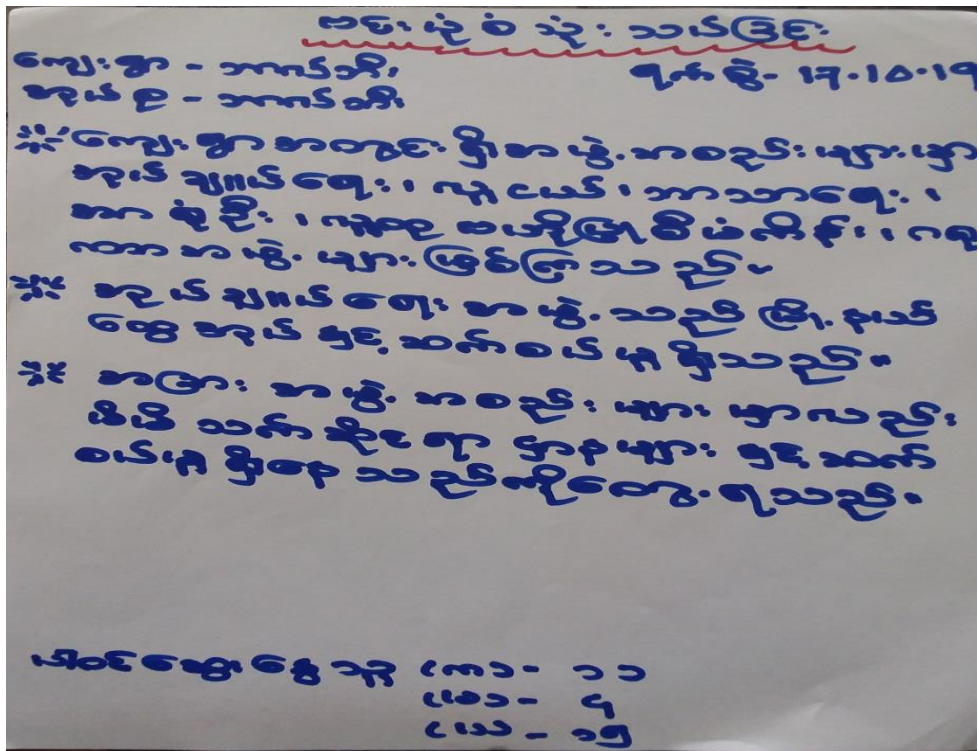 ဗင်းပုံစံသုံးသပ်ခြင်း
ကျေးရွာ - ဘာဂင်ဘီး
အုပ်စု - ဘာဂင်ဘီး
ရက်စွဲ - 17.10.19
ကျေးရွာအတွင်းရှိအဖွဲ့အစည်းများမှာ
အုပ်ချုပ်ရေး၊ လူငယ်၊ ဘာသာရေး၊
ဖြစ်ကြသည်။
အုပ်ချုပ်ရေးအဖွဲ့သည် မြို့နယ်
ထွေအုပ်နှင့်ဆက်စပ်မှုရှိသည်။
အခြားအဖွဲ့အစည်းများမှာလည်း
မိမိသက်ဆိုင်ရာဌာနများနှင့်ဆက်
စပ်မှုရှိနေသည်ကိုတွေ့ရသည်။
ပါဝင်ဆွေးနွေးသူ (ကျား) - ၁၁
(မ) - ၄
၁၅